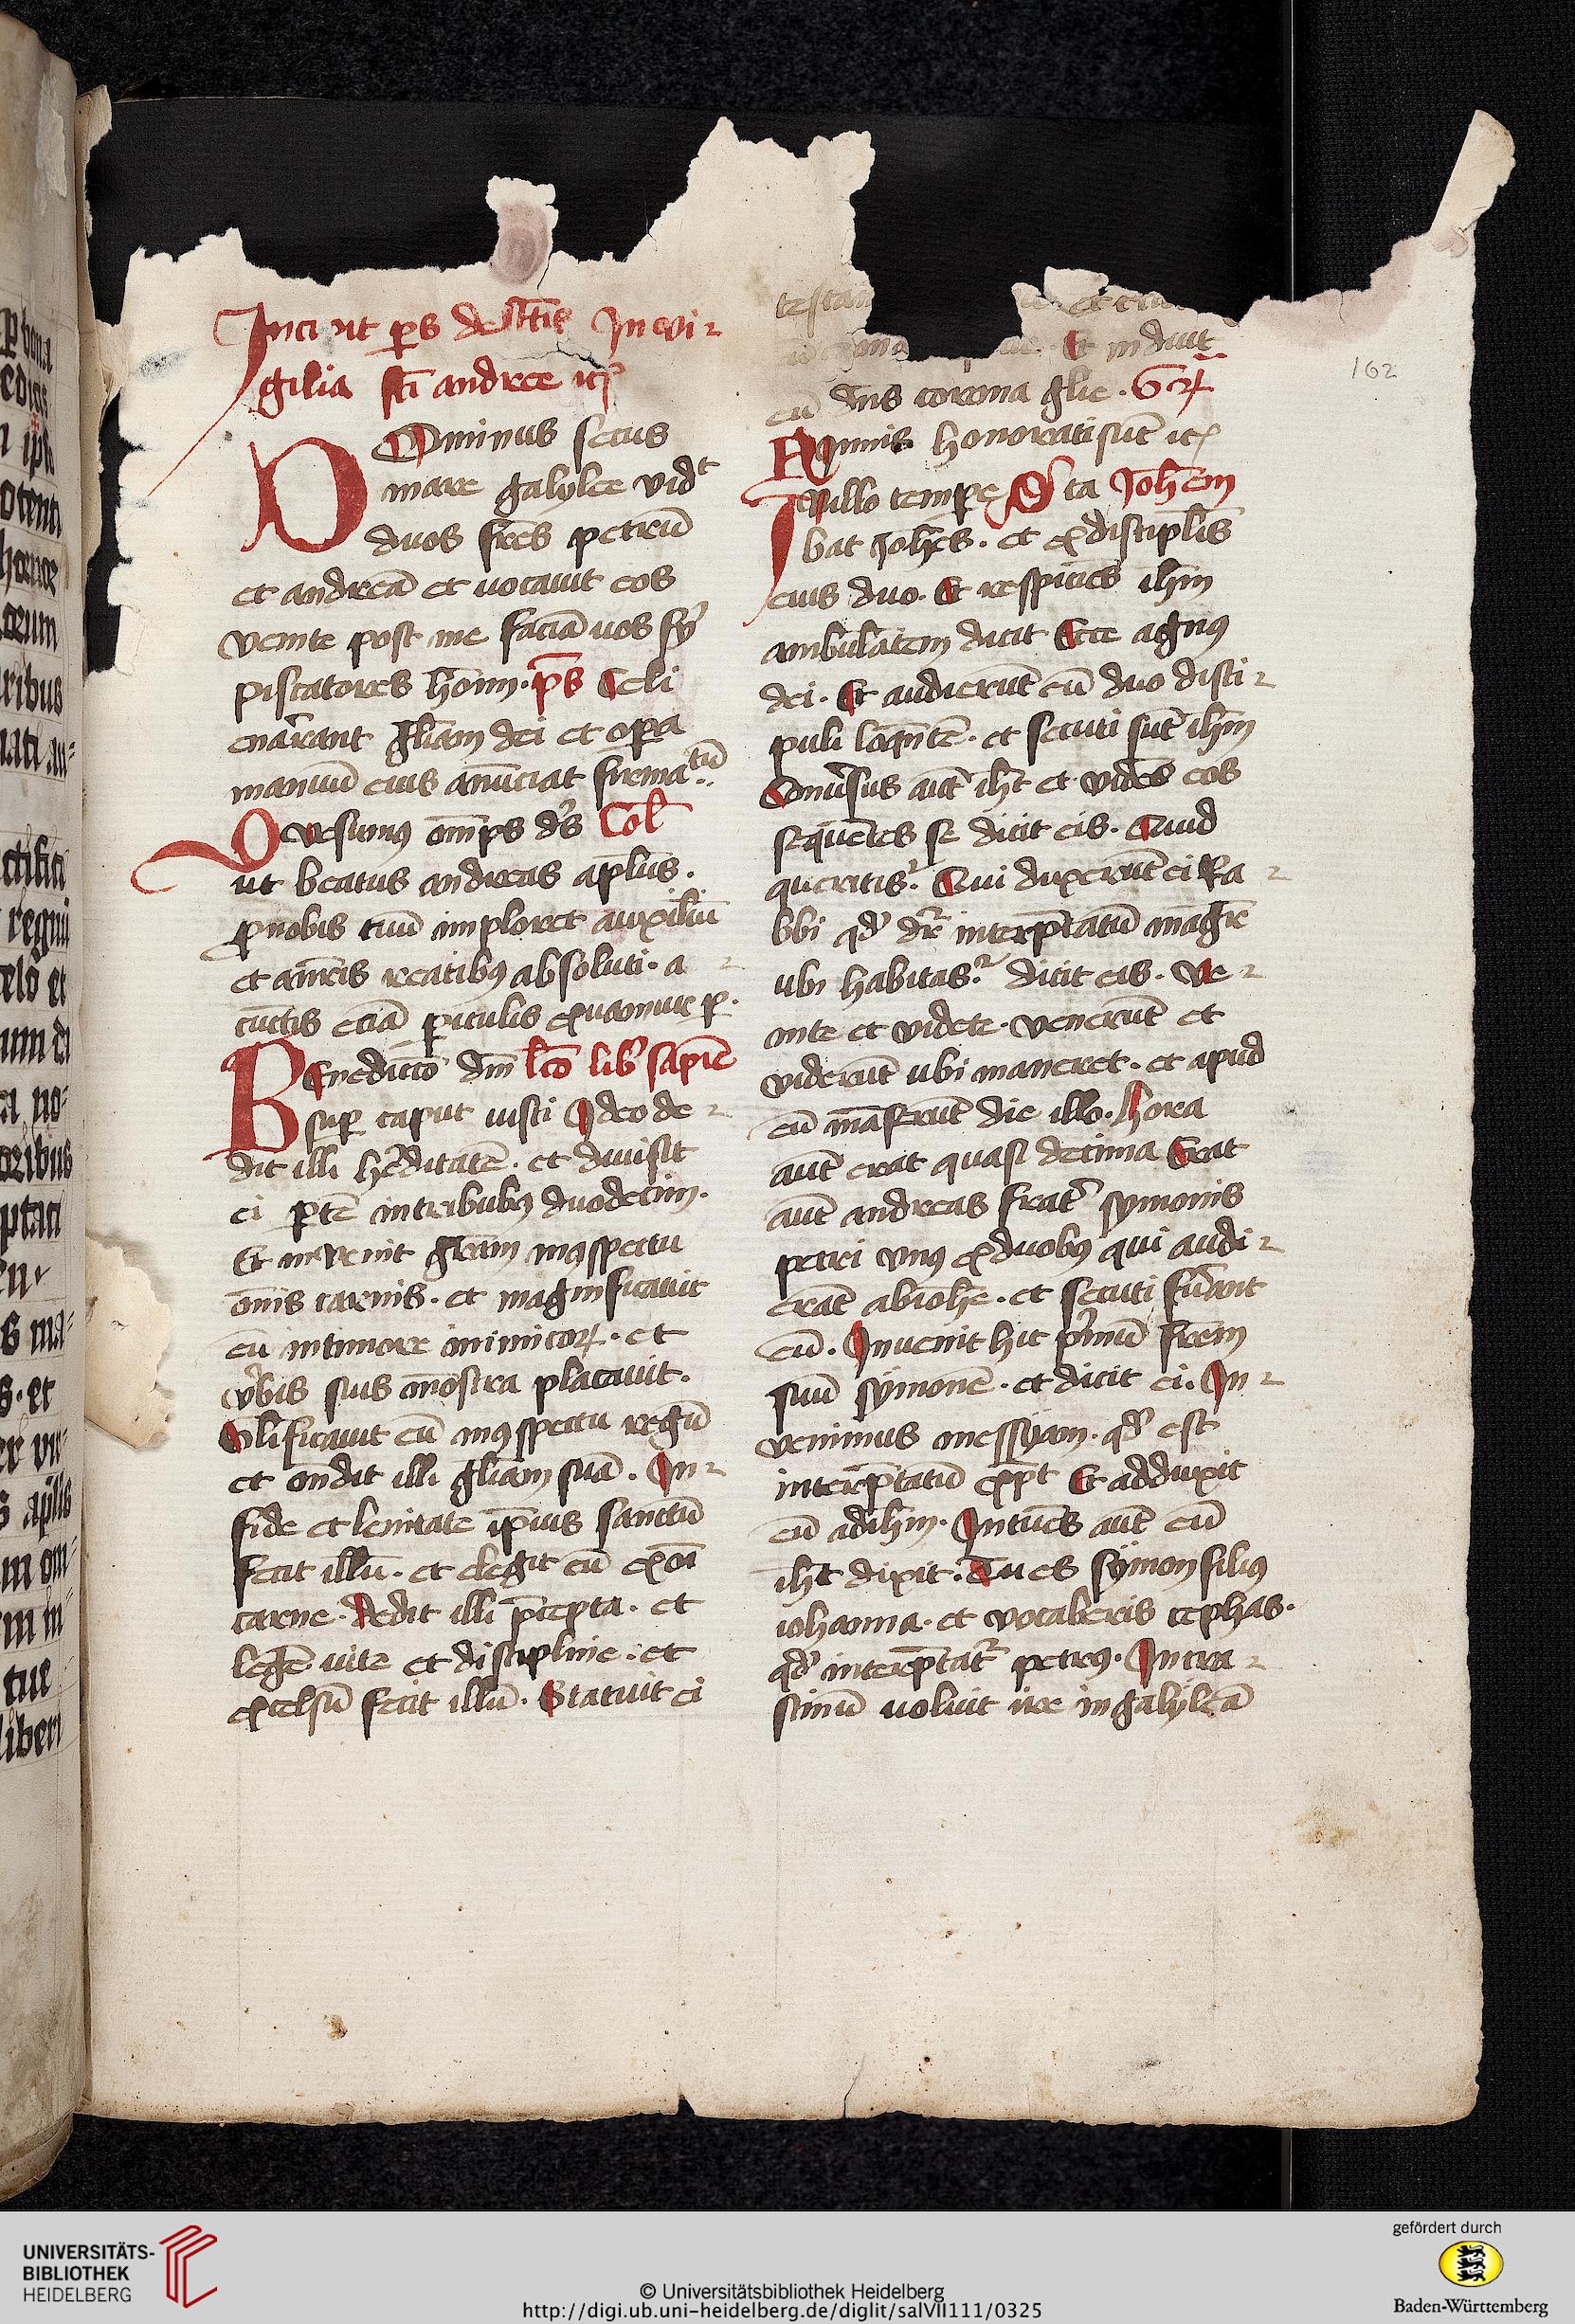 de sc̄tis In vi-
gilia sc̄i andree
Dominus secus
mare galylee vidt
duos frēs petrū
et andreā et uocauit eos
venite post me faciā uos
piscatores hoīm. ps Celi
enarrant gl̄iam dei et opera
manuū eius anūciat firmatū
Qvesumus om̄ps ds Col
ut beatus andreas aplūs.
pro nobis tuū imploret auxiliū
et a nr̄is reatibus absoluti. a
cūctis eciā periculis exuamur p.
Benedictio dm̄ lc̄o lib sapie
sup caput iusti Ideo de-
dit illi heditatē. et diuisit
ei ptē in tribubus duodecim.
Et invenit gr̄am in 9spectu
om̄is carnis. et magnificauit
eū in timore inimicor. et
vbis suis mōstra placauit.
Glificauit eū in 9spectu regū
et ondit illi gl̄iam suā. In
fide et lenitate ip̄ius sanctū
fecit illū. et elegit eū ex oī
carne. dedit illi p̄cepta. et
legē uite et discipline. et
excelsū fecit illū. Statuit ei
Et induit
eū dn̄s corona glie. Gr
Nimis honorati sūt
In illo tempe Sta Joh̄em
bat Joh̄es. et ex discipl̄is
eius duo. Et respiciēs ih̄m
ambulātem dicit Ecce agnus
dei. Et audierūt eū duo disci-
puli loquntē. et secuti sūt ih̄m
Conuersus aūt ih̄c et vidēs eos
sequētes se dicit eis. Quid
queritis. Qui dixerūt ei Ra-
bbi qd dr̄ interp̄tatū magr̄
ubi habitas. dicit eis. Ve-
nite et videte. venerūt et
viderūt ubi maneret. et apud
eū māserūt die illo. hora
aūt erat quasi decima Erat
aūt andreas frater symonis
petri vnus ex duobus qui audi-
erāt ab ioh̄e. et secuti fūant
eū. Inuenit hic p̄mū frēm
suū symonē. et dicit ei. In-
uenimus messyam. qd est
interp̄tatū xp̄c Et adduxit
eū ad ih̄m. Intuēs aūt eū
ih̄c dixit. Tu es symon filius
iohanna. et vocaberis cephas.
qd interp̄tatr petrus. In cra-
stinū uoluit ire in galyleā
162
UNIVERSITÄTS-
BIBLIOTHEK
HEIDELBERG
© Universitätsbibliothek Heidelberg
http://digi.ub.uni-heidelberg.de/diglit/salVII111/0325
gefördert durch
Baden-Württemberg